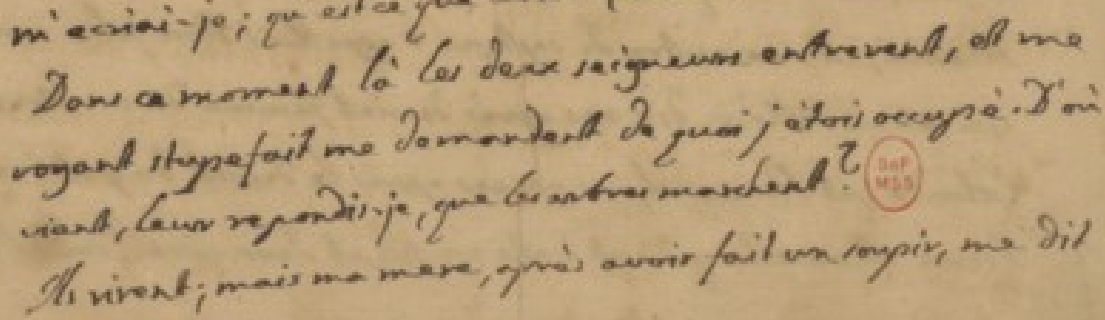 m'ecriai-je; qu'est ce que
Dans ce moment là les deux seigneurs entrerent, et me
voyant stupefait me demandent de quoi j'étois occupé. D'où
vient, leur repondis-je, que les arbres marchent?
BnF
MSS
Ils rirent; mais ma mere, après avoir fait un soupir, me dit